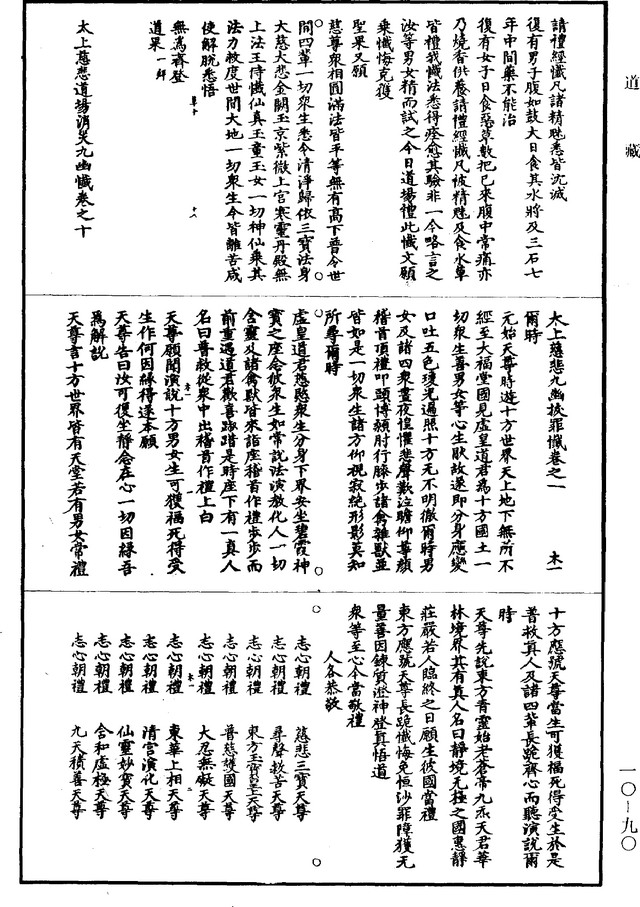 道藏
請禮經懺凡諸精魅悉皆沉滅
復有男子腹如鼓大日食其水將及三石七
年中間藥不能治
復有女子日食惡草數把已來腹中常痛亦
乃燒香供養請禮經懺凡被精魅及食水草
皆禮我懺法悉得痊愈其驗非一今略言之
汝等男女精而試之今日道場禮此懺文願
乘懺悔克獲
聖果又願
慈尊衆相圓滿法皆平等無有高下普令世
間四輩一切衆生悉令清淨歸依三寶法身
大慈大悲金闕玉京紫微上宮寒靈丹殿無
上法王侍懺仙真玉童玉女一切神仙乘其
法力救度世間大地一切衆生令皆離苦咸
使解脫悉悟
無為齊登
道果一拜
太上慈悲道場消災九幽懺卷之十
太上慈悲九幽拔罪懺卷之一
木一
爾時
元始天尊時遊十方世界天上地下無所不
經至大福堂國見虛皇道君為十方國土一
切衆生善男女等心生猒故遂即分身應變
口吐五色瓊光遍照十方无不明徹爾時男
女及諸四衆晝夜惶懼悲聲歎泣瞻仰尊顏
稽首頂禮叩頭博顙肘行膝步諸禽雜獸並
皆如是一切衆生諸方仰視寂絶形影莫知
所尋爾時
虛皇道君慈愍衆生分身下界安坐碧霞神
寶之座念彼衆生如常說法演教化人一切
含靈及諸禽獸皆來詣座稽首作禮步步而
前重遇道君歡喜踴踏是時座下有一真人
名曰普救從衆中出稽首作禮上白
天尊願聞演說十方男女生可獲福死得受
生作何因緣得遂本願
天尊告曰汝可復坐靜念在心一切因緣吾
為解說
天尊言十方世界皆有天堂若有男女常禮
十方應號天尊當生可獲福死得受生於是
普救真人及諸四輩長跪齊心而聽演說爾
時
天尊先說東方青靈始老蒼帝九炁天君華
林境界其有真人名曰靜境无極之國惠靜
莊嚴若人臨終之日願生彼國當禮
東方應號天尊長跪懺悔免恒沙罪障獲无
量善因鍊質澄神登真悟道
衆等至心今當敬禮
人各恭敬
志心朝禮 慈悲三寶天尊
志心朝禮 尋聲救苦天尊
志心朝禮 東方玉寶皇天尊
志心朝禮 普慈護國天尊
志心朝禮 大忍無礙天尊
志心朝禮 東華上相天尊
志心朝禮 清宮演化天尊
志心朝禮 仙靈妙寶天尊
志心朝禮 合和虛極天尊
志心朝禮 九天積善天尊
一〇-九〇